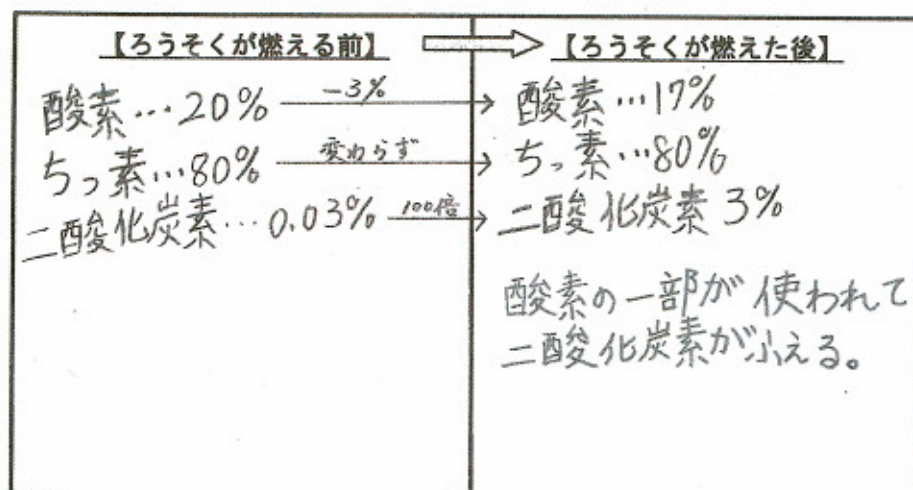 【ろうそくが燃える前】
【ろうそくが燃えた後】
酸素…20% -3% 酸素…17%
ちっ素…80% 変わらず ちっ素…80%
二酸化炭素…0.03% 100倍 二酸化炭素 3%
酸素の一部が使われて
二酸化炭素がふえる。